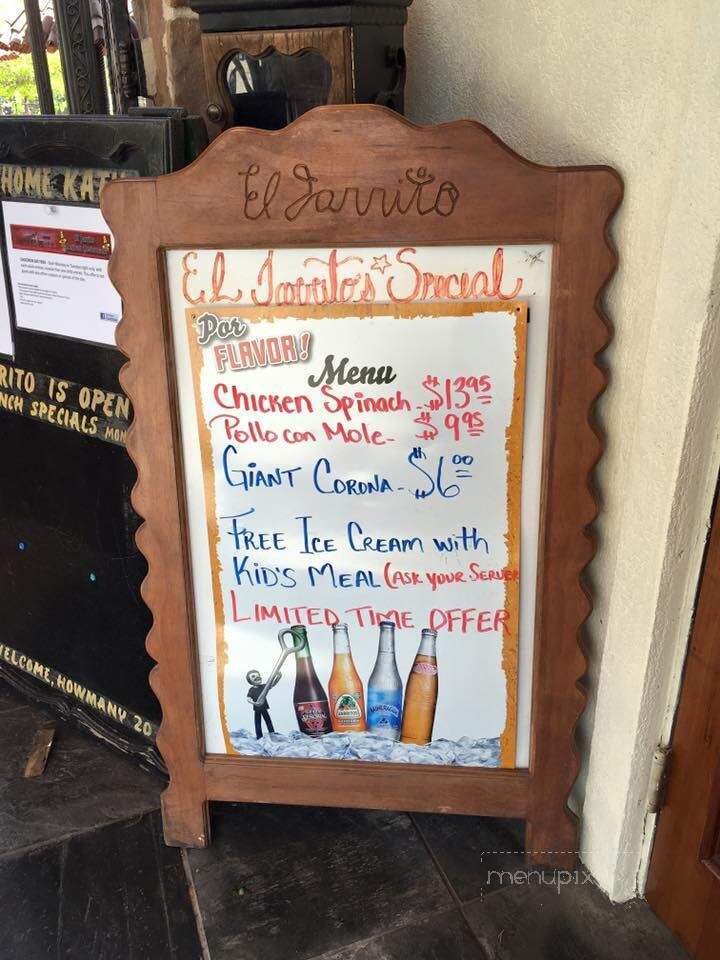 El Jarrito
El Jarrito's Special
Por
FLAVOR!
Menu
Chicken Spinach - $13.95
Pollo con Mole - $9.95
GIANT CORONA - $6.00
FREE ICE CREAM with
KID'S MEAL (ASK YOUR SERVER
LIMITED TIME OFFER
HOME KAT
RITO IS OPEN
NCH SPECIALS MON
WELCOME, HOWMANY 20
JARRITOS
MINERAGUA
menupix